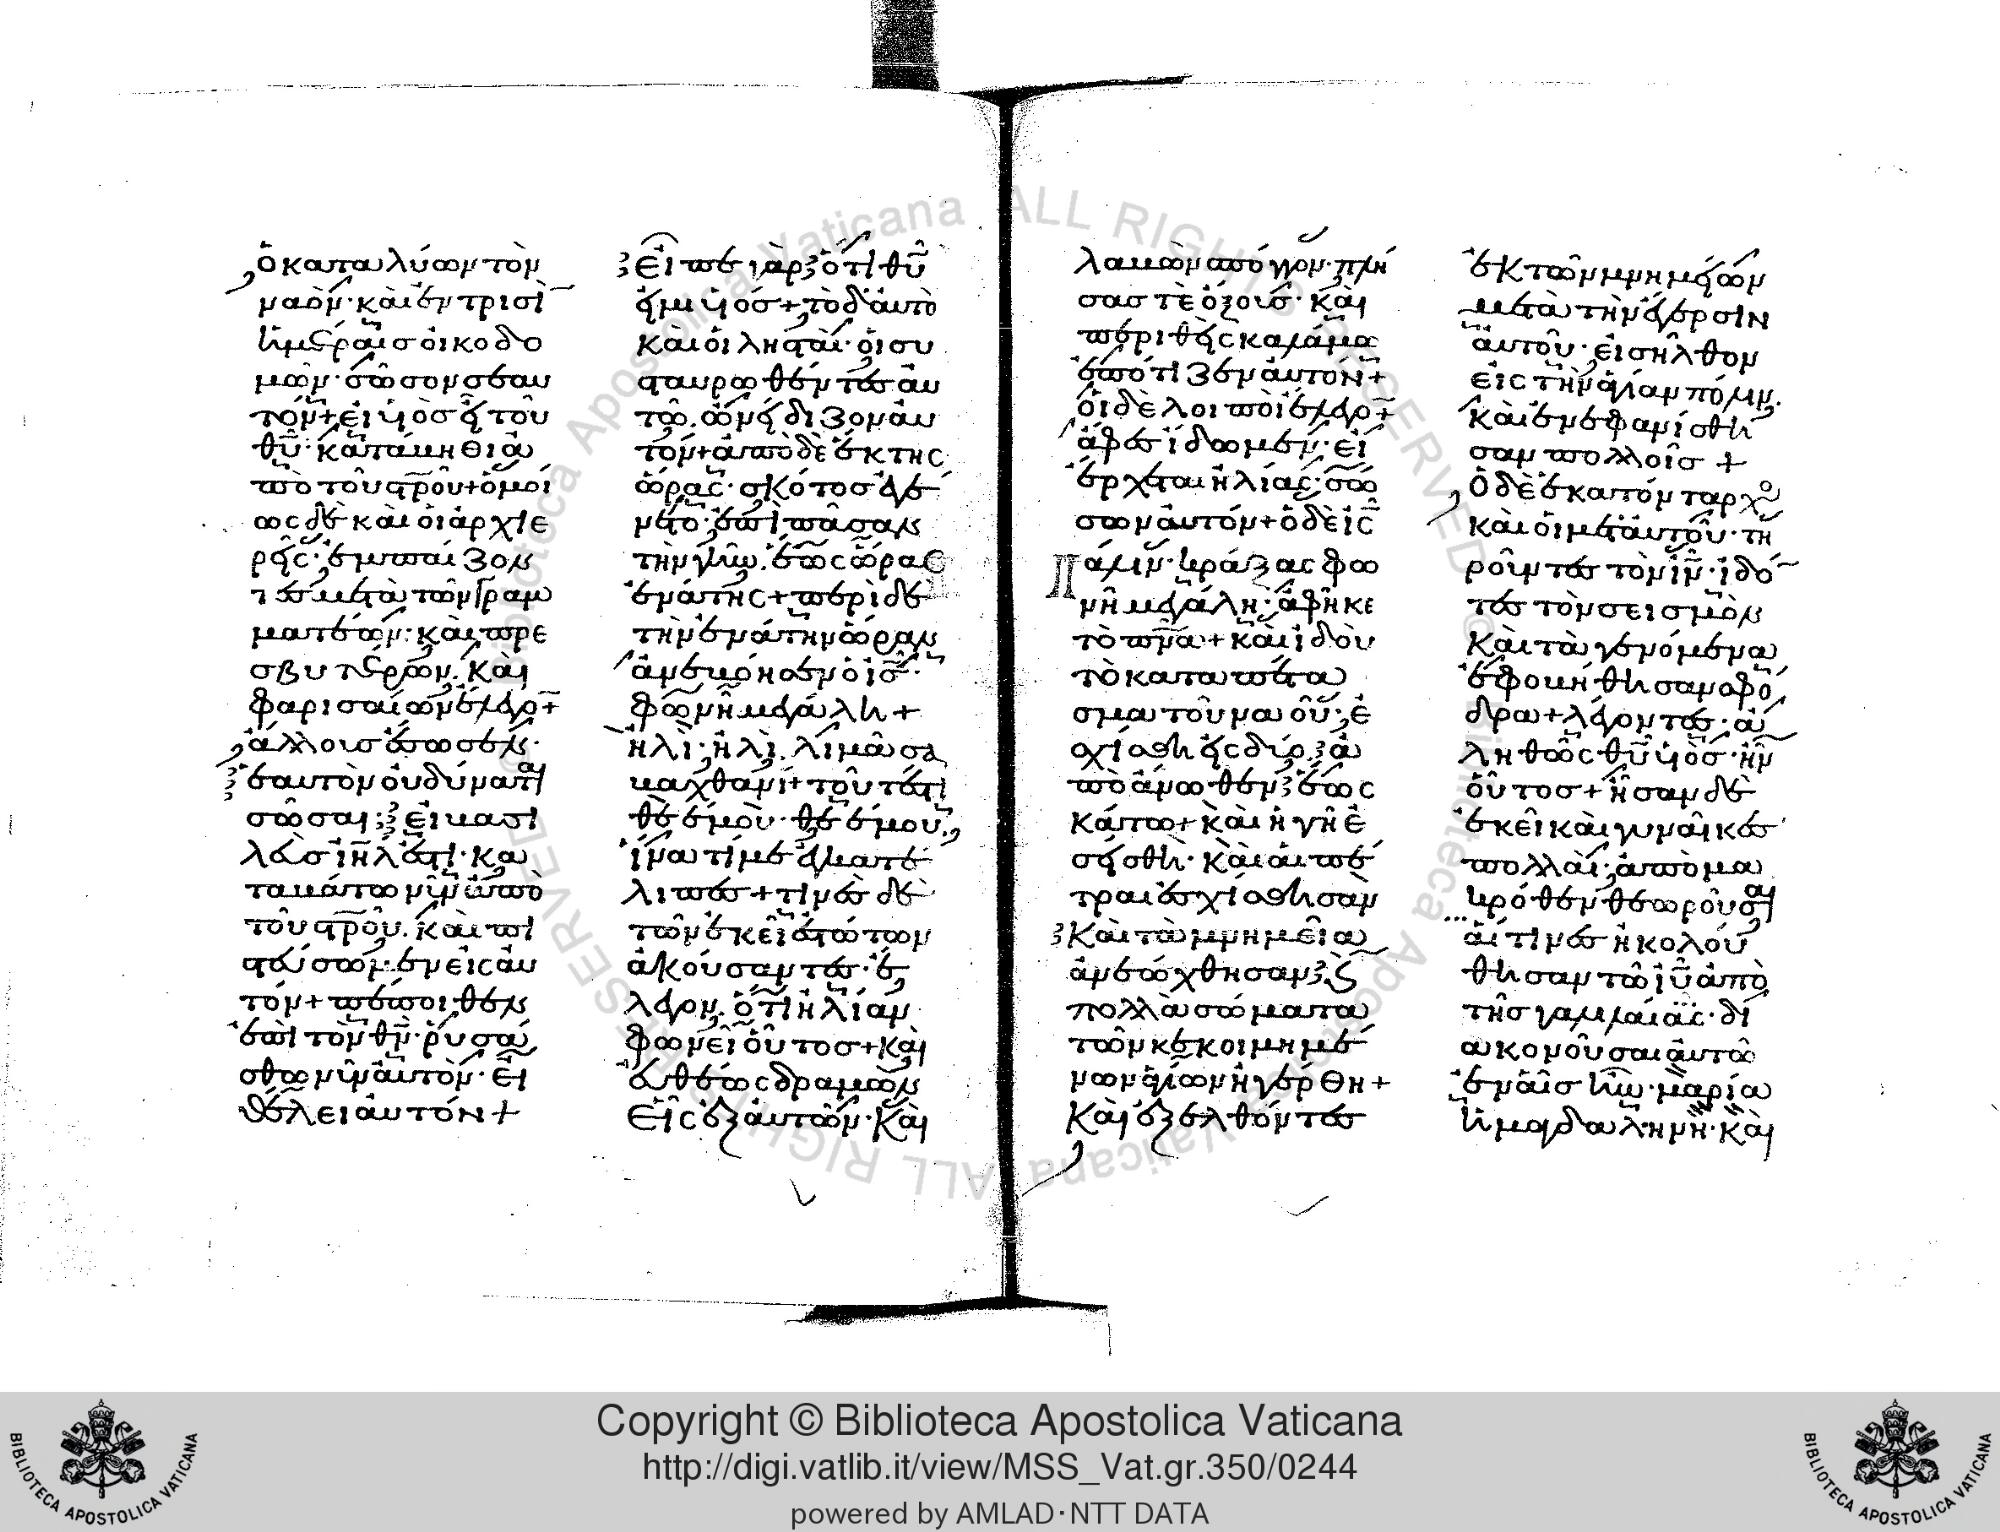 ὁ καταλύων τὸν
ναὸν· καὶ ἐν τρισὶ
ἡμέραις οἰκοδο
μῶν· σῶσον σεαυ
τόν + εἰ υἱὸς εἶ τοῦ
θῦ· κατάβηθι ἀ
πὸ τοῦ σταυροῦ + ὁμοί
ως δὲ καὶ οἱ ἀρχιε
ρεῖς· ἐμπαίζον
τες μετὰ τῶν γραμ
ματέων· καὶ πρε
σβυτέρων· καὶ
φαρισαίων ἔλεγον +
ἄλλους ἔσωσεν·
ἑαυτὸν οὐ δύναται
σῶσαι· εἰ βασι
λεὺς ιηλ ἐστὶ· κα
ταβάτω νῦν ἀπὸ
τοῦ σταυροῦ· καὶ πι
στεύσωμεν εἰς αὐ
τόν + πέποιθεν
ἐπὶ τὸν θν· ῥυσά
σθω νῦν αὐτὸν· εἰ
θέλει αὐτόν +
εἶπε γὰρ ὅτι θῦ
εἰμι υἱός + τὸ δ' αὐτὸ
καὶ οἱ λησταὶ· οἱ συ
σταυρωθέντες αὐ
τῶ· ὠνείδιζον αὐ
τόν + ἀπὸ δὲ ἕκτης
ὥρας· σκότος ἐγέ
νετο· ἐπὶ πᾶσαν
τὴν γῆν· ἕως ὥρας
ἐνάτης + περὶ δὲ
τὴν ἐνάτην ὥραν
ἀνεβόησεν ὁ ις·
φωνῆ μεγάλη +
ἠλὶ· ἠλὶ· λιμᾶ σα
βαχθανί + τοῦτ' ἔστι
θεέ μου· θεέ μου·
ἵνα τί με ἐγκατέ
λιπες + τινὲς δὲ
τῶν ἐκεῖ ἑστώτων
ἀκούσαντες· ἔ
λεγον· ὅτι ἠλίαν
φωνεῖ οὗτος + καὶ
εὐθέως δραμὼν
εἷς ἐξ αὐτῶν· καὶ
λαβὼν σπόγγον· πλή
σας τὲ ὄξους· καὶ
περιθεὶς καλάμω
ἐπότιζεν αὐτόν +
οἱ δὲ λοιποὶ ἔλεγον +
ἄφες ἴδωμεν· εἰ
ἔρχεται ἠλίας· σώ
σων αὐτόν + ὁ δὲ ις
πάλιν· κράξας φω
νῆ μεγάλη· ἀφῆκε
τὸ πνα + καὶ ἰδοὺ
τὸ καταπέτα
σμα τοῦ ναοῦ· ἐ
σχίσθη εἰς δύο· ἀ
πὸ ἄνωθεν ἕως
κάτω + καὶ ἡ γῆ ἐ
σείσθη· καὶ αἱ πέ
τραι ἐσχίσθησαν
καὶ τὰ μνημεῖα
ἀνεώχθησαν· καὶ
πολλὰ σώματα
τῶν κεκοιμημέ
νων ἁγίων ἠγέρθη +
καὶ ἐξελθόντες
ἐκ τῶν μνημείων
μετὰ τὴν ἔγερσιν
αὐτοῦ· εἰσῆλθον
εἰς τὴν ἁγίαν πόλιν·
καὶ ἐνεφανίσθη
σαν πολλοῖς +
ὁ δὲ ἑκατόνταρχος
καὶ οἱ μετ' αὐτοῦ· τη
ροῦντες τὸν ιν· ἰδό
τες τὸν σεισμὸν
καὶ τὰ γενόμενα
ἐφοβήθησαν σφό
δρα + λέγοντες· ἀ
ληθῶς θῦ υἱὸς· ἦν
οὗτος + ἦσαν δὲ
ἐκεῖ καὶ γυναῖκες
πολλαί· ἀπὸ μα
κρόθεν θεωροῦσαι
αἵτινες ἠκολού
θησαν τῶ ιυ ἀπὸ
τῆς γαλιλαίας· δι
ακονοῦσαι αὐτῶ
ἐν αἷς ἦν· μαρία
ἡ μαγδαληνὴ· καὶ
Copyright © Biblioteca Apostolica Vaticana
http://digi.vatlib.it/view/MSS_Vat.gr.350/0244
powered by AMLAD·NTT DATA
BIBLIOTECA APOSTOLICA VATICANA
BIBLIOTECA APOSTOLICA VATICANA